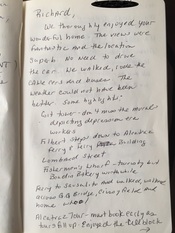 Richard,
We thoroughly enjoyed your
wonderful home. The views were
fantastic and the location
superb. No need to drive
the car. We walked, rode the
cable cars and busses. The
weather could not have been
better. Some highlights:
Coit tower - dem 4 mom the murals
depicting depression era
workers
Filbert Steps down to
ferry & Ferry Building
Lombard Street
Fishermans Wharf - touristy but
Boudin Bakery worthwhile
Ferry to Sausalito and walked,
across G.G. Bridge,
home
Alcatraz Tour - must book early
but full up. Enjoyed the